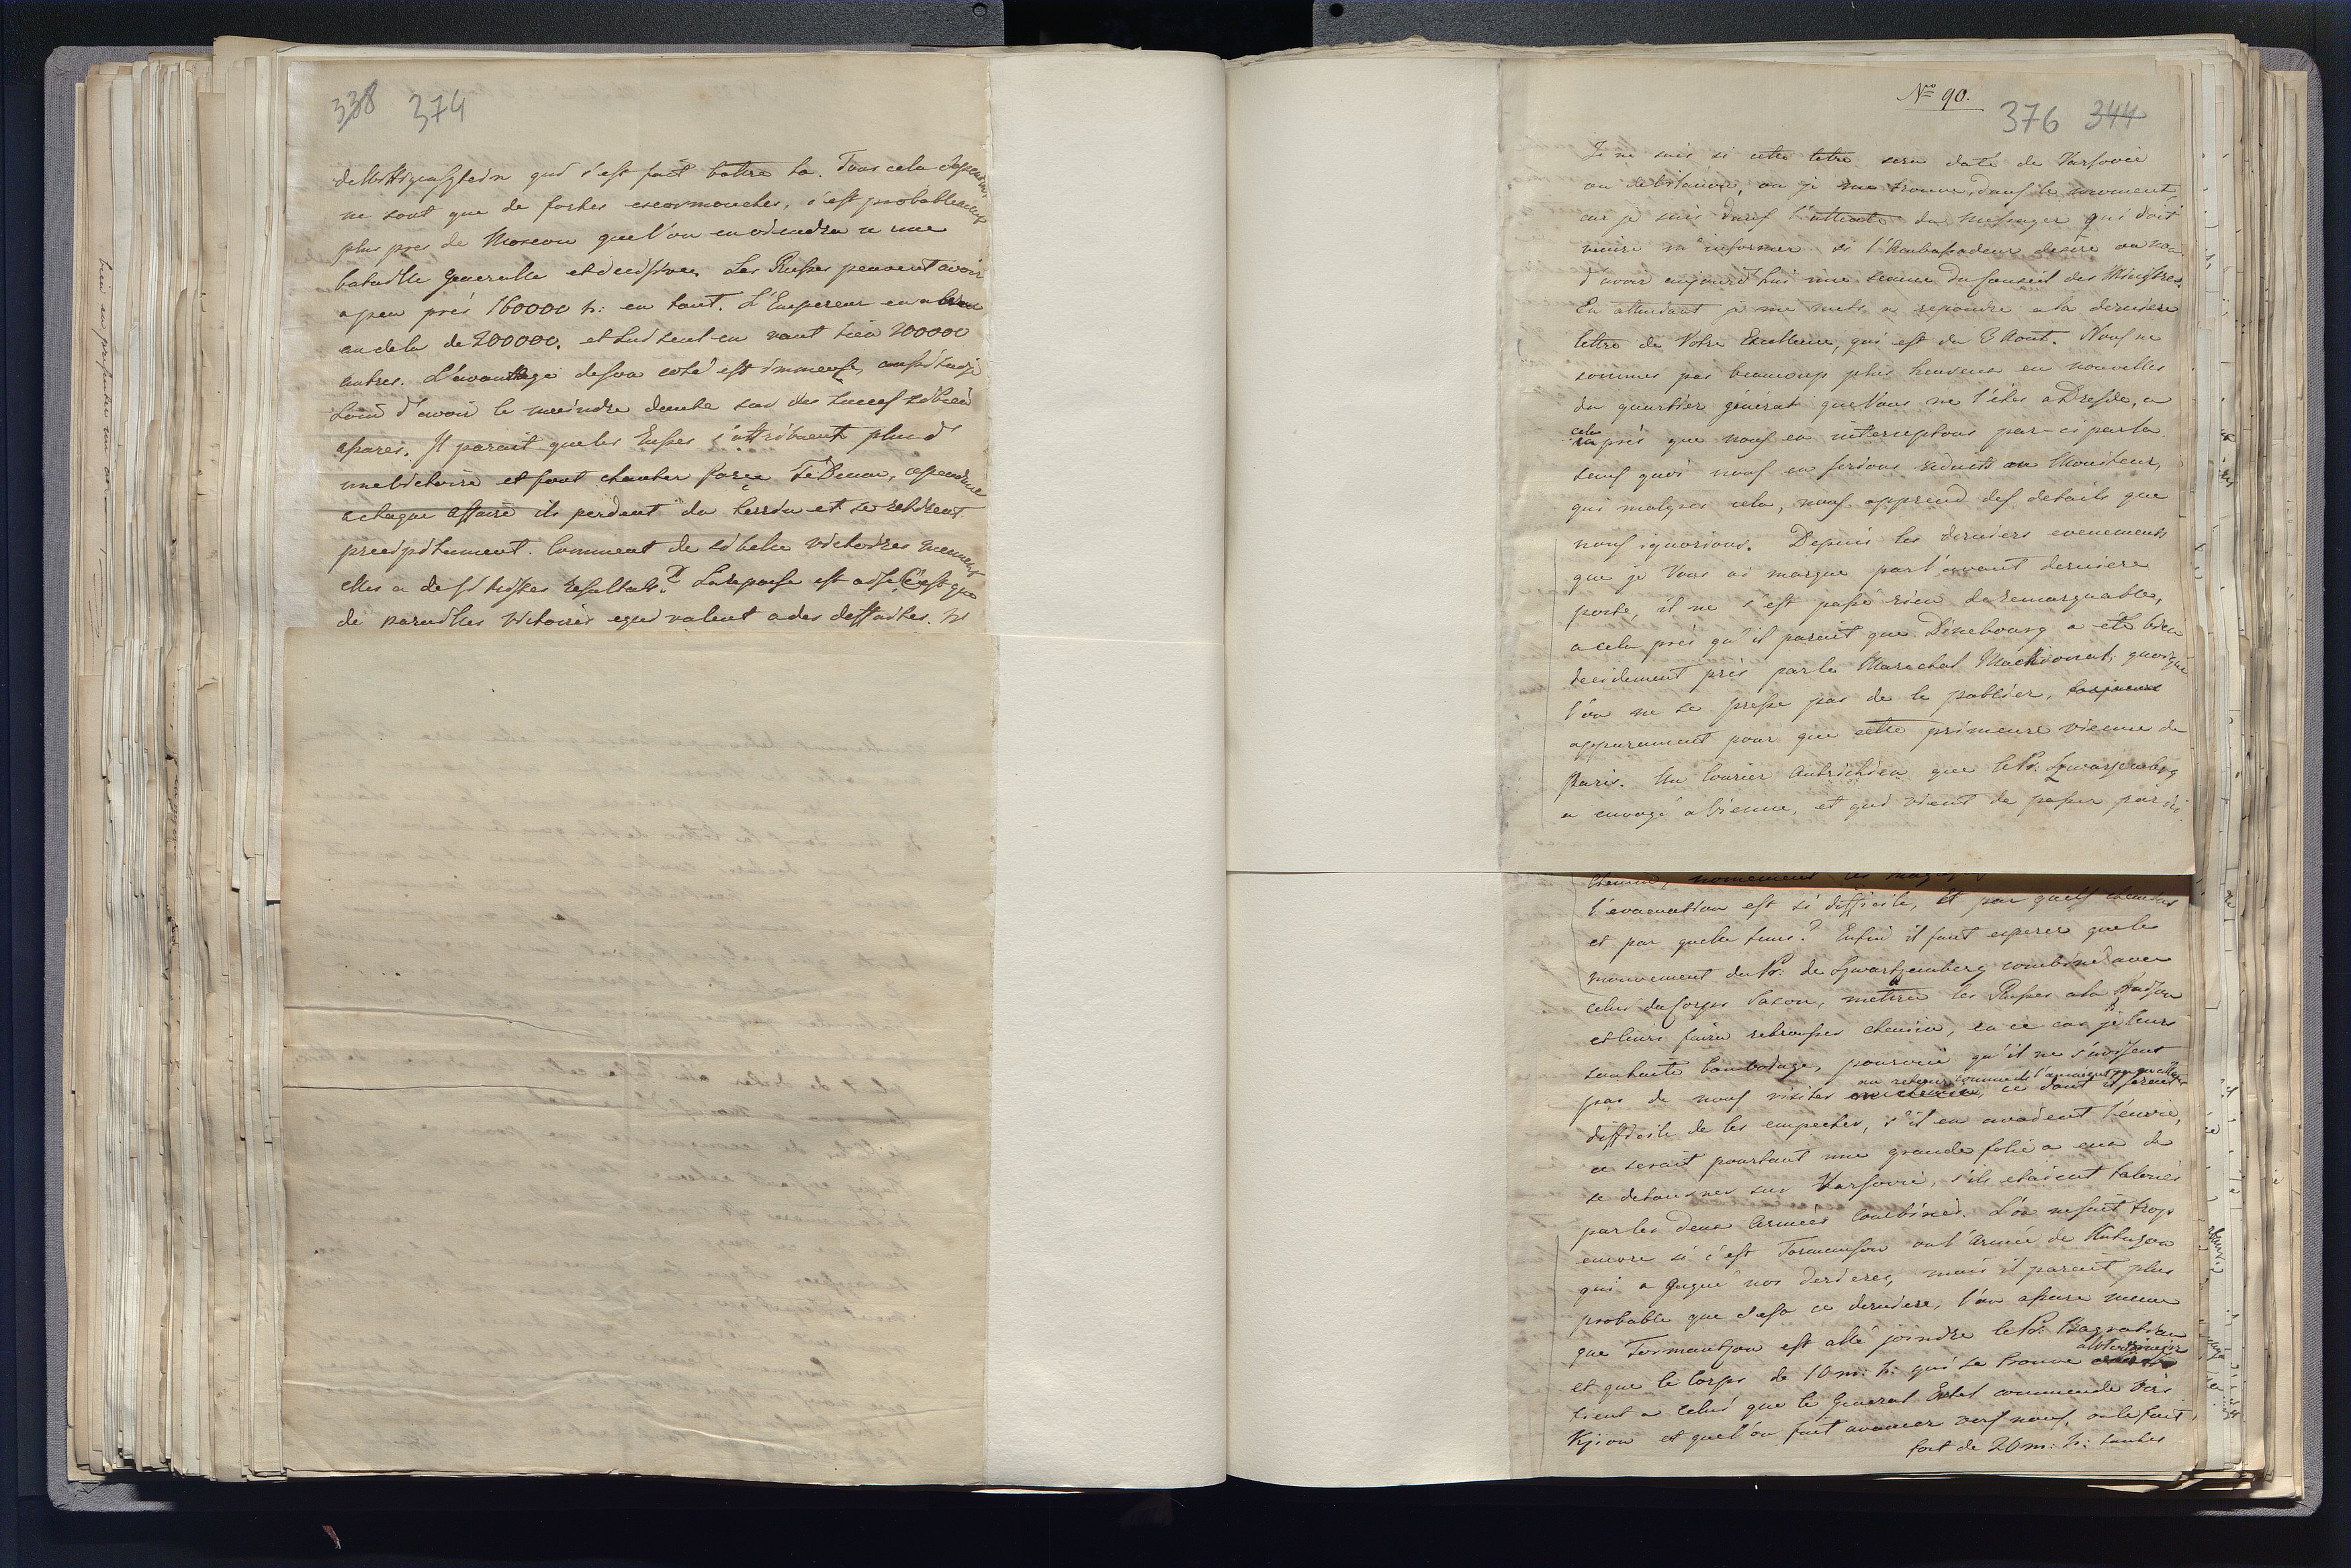 338 374
qui s'est fait battre la. Tous cela
ne sont que de fortes escarmouches, c'est probablement
plus pres de Moscou que l'on en viendra a une
bataille generalle et decisive. Les Russes peuvent avoir
a peu près 160000 h: en tout. L'Empereur en a
au dela de 200000. et lui seul en vaut bien 200000
autres. L'avantage de son coté est immense, aussi
loin d'avoir le moindre doute sur des succes si bien
assurés. Il parait que les Russes s'attribuent plus d'
une victoire et font chanter force Te Deum,
a chaque affaire ils perdent du terrein et se retirent
precipitament. Comment de si belles victoires menent
elles a de si tristes resultats? La reponse est aisé, C'est que
de pareilles victoires equivalent a des deffaites.
Nro 90.
376 344
Je ne sais si cette lettre sera daté de Varsovie
ou de ou je me trouve, dans le moment,
car je suis dans l'attente du messager qui doit
venire m'informer si l'Ambassadeur desire ou non
d'avoir aujourd'hui une seance du Conseil des Ministres.
En attendant je me mets a repondre a la derniere
lettre de Votre Excellence, qui est du 3 Aout. Nous ne
sommes pas beaucoup plus heureux en nouvelles
du quartier général que Vous ne l'étes a Dresde, a
cela près que nous en interceptons par-ci par la
sans quoi nous en serions reduits au Moniteur,
qui malgres cela, nous apprend des details que
nous ignorions. Depuis les derniers evenements
que je Vous ai marque par l'avant derniere
poste, il ne s'est passé rien de remarquable,
a cela près qu'il parait que Dinebourg a été bien
decidement pris par le Marechal Macdonal, quoique
l'on ne se presse pas de le publier,
apparament pour que cette primeure vienne de
Paris. Un Courier Autrichien que le Pr. Szwarzenberg
a envoyé a Vienne, et qui vient de passer par ici
l'evacuation est si difficile, et par quels chemins
et par quelle tems? Enfin il faut esperer que le
mouvement du Pr: de Szwartzemberg combiné avec
celui du Corps Saxon, mettra les Russes a la raison
et leurs faira rebrousser chemin, en ce cas je leurs
souhaite bon voïage, pourvu qu'il ne s'avisent
pas de nous visiter au retour, ce dont il serait
difficile de les empecher, s'il en avaient l'envie,
ce serait pourtant une grande folie a eux de
se detourner sur Varsovie, s'ils etaient talonés
par les deux Armées combinées. L'on ne sait trop
encore si c'est Tormansow ou l'armée de Kutuzow
qui a gagné nos derieres, mais il parait plus
probable que c'est ce derniere, l'on assure meme
que Tormantzow est allé joindre le Pr: Bagration
et que le Corps de 10 m: h: qui se trouve
tient a celui que le General Ertel commende vers
Kjiow et que l'on fait avancer vers nous, on le fait
fort de 20 m: h: toutes